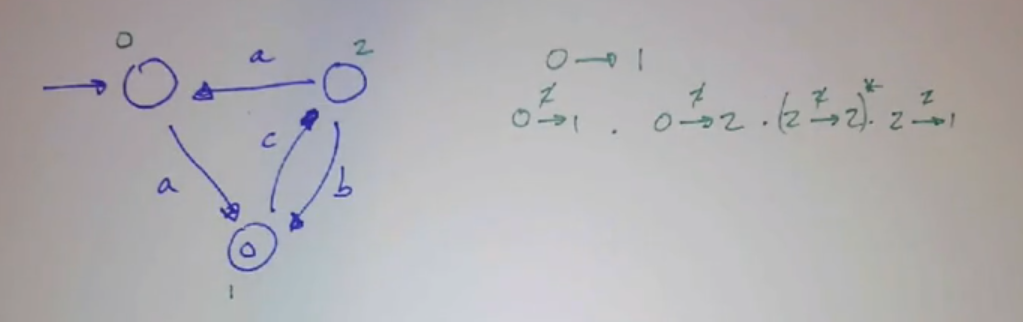 0 2
a
c
a b
0
1
0 → 1
0 →^{2̸} 1 . 0 →^{2̸} 2 . (2 →^{2̸} 2)^* . 2 →^{2̸} 1